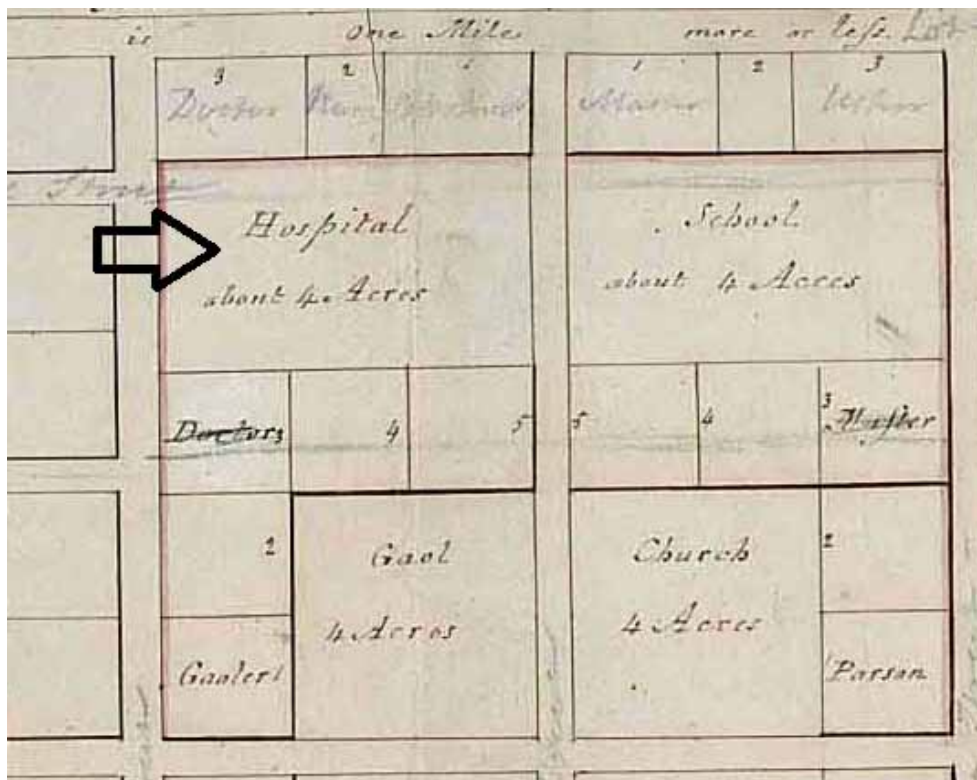 is One Mile more or less Lot
3 2 1 1 2 3
Doctor Master Usher
Hospital
about 4 Acres
School
about 4 Acres
Doctor 3 4 5
5 4 3 Master
2
Gaol
4 Acres
Gaoler 1
Church
4 Acres
2
1 Parson